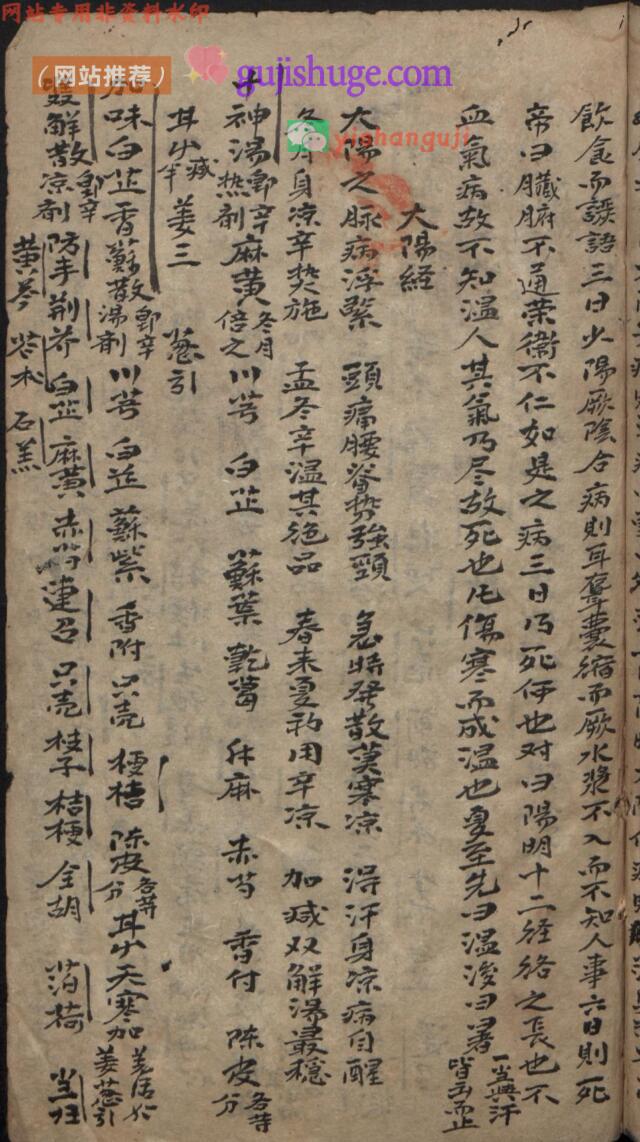 网站专用非资料水印
（网站推荐）
gujishuge.com
yishanguji
飲食而譫語三日少陽厥陰合病則耳聾囊縮而厥水漿不入而不知人事六日則死
帝曰臟腑不通荣衛不仁如是之病三日乃死何也对曰陽明十二経絡之長也不
血氣病故不知温人其氣乃尽故死也凡傷寒而成温也夏至先曰温後曰暑 皆出而止
太陽経
太陽之脉病浮緊 頭痛腰脊勢強頸 急將發散莫寒凉 得汗身凉病自醒
冬月身凉辛热施 孟冬辛温其绝品 春末夏初用辛凉 加减双解湯最穩
十神湯 即辛热剂 麻黄 冬月倍之 川芎 白芷 蘇葉 乾葛 升麻 赤芍 香付 陈皮 各等分
耳少 減半 姜三 葱引
加味白芷香蘇散 即辛湯剤 川芎 白芷 蘇紫 香附 只壳 梗桔 陈皮 各等分 耳少天寒加 姜葱引
雙解散 即辛凉剤 防丰 荆芥 白芷 麻黄 赤芍 連召 只壳 枝子 桔梗 全胡 泊荷 当归
黄芩 石羔